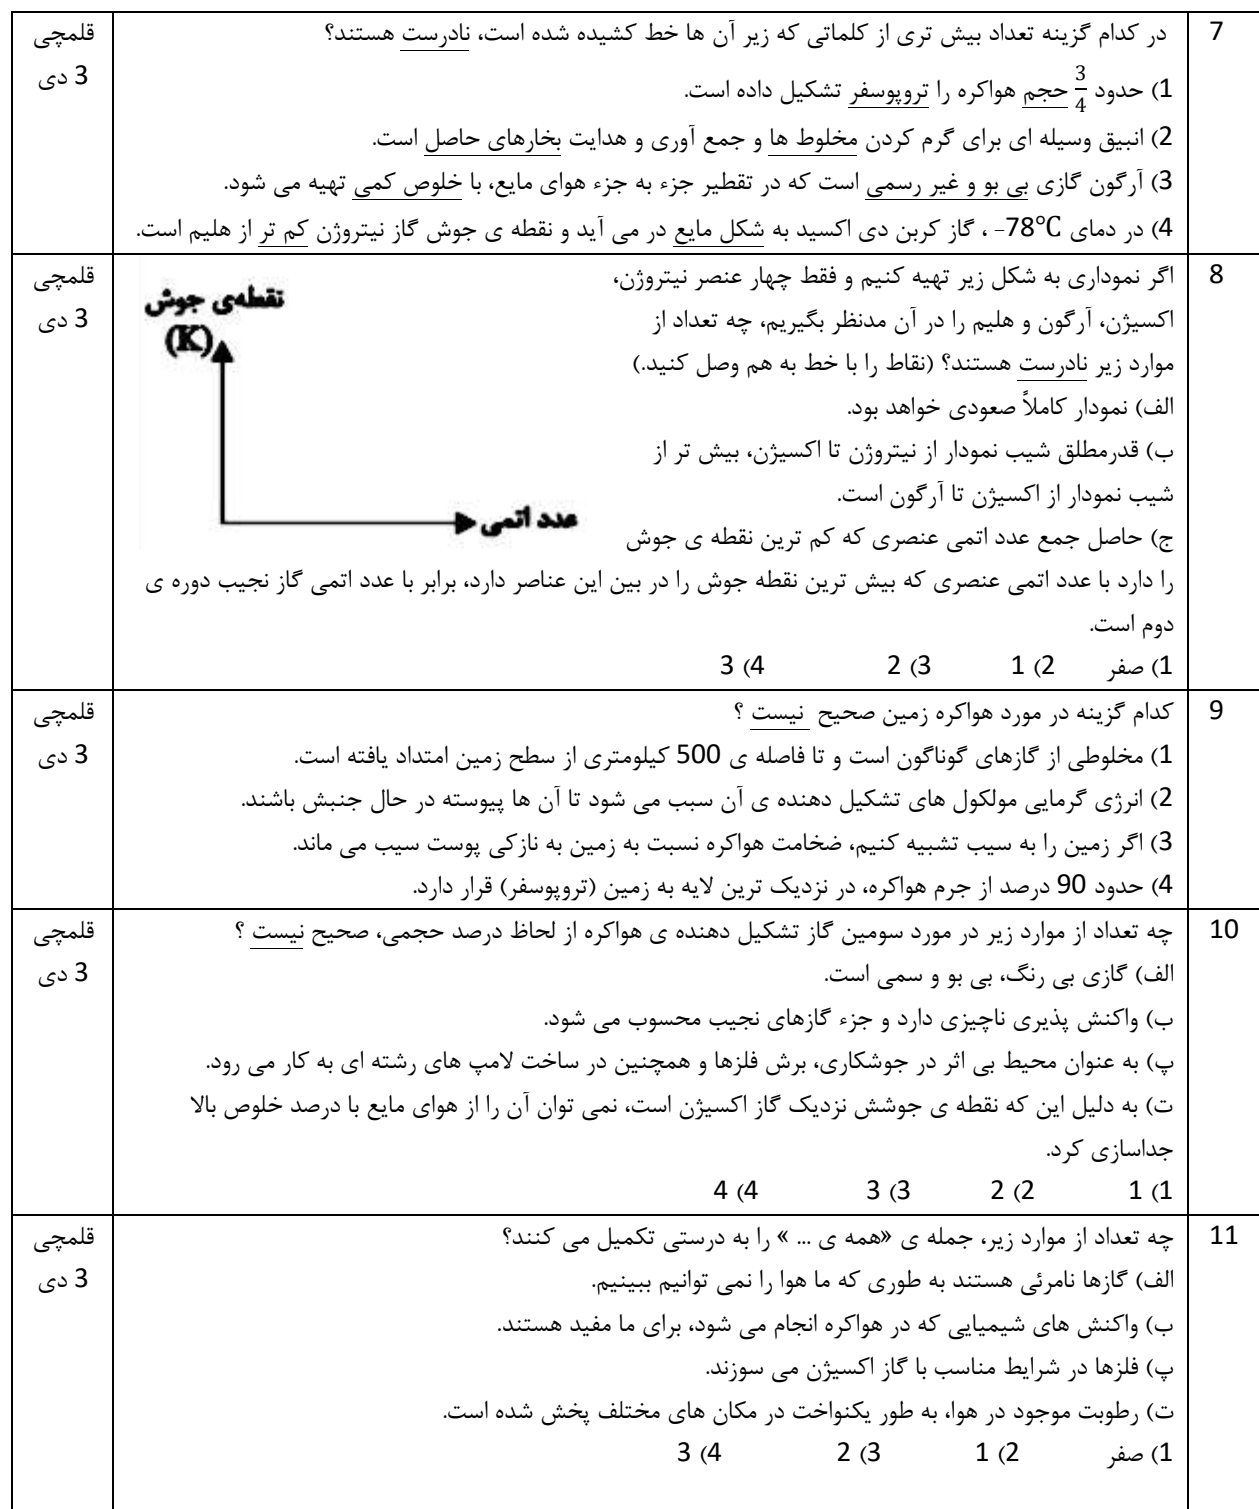 7
در کدام گزینه تعداد بیش تری از کلماتی که زیر آن ها خط کشیده شده است، نادرست هستند؟
1) حدود 3/4 حجم هواکره را تروپوسفر تشکیل داده است.
2) انبیق وسیله ای برای گرم کردن مخلوط ها و جمع آوری و هدایت بخارهای حاصل است.
3) آرگون گازی بی بو و غیر رسمی است که در تقطیر جزء به جزء هوای مایع، با خلوص کمی تهیه می شود.
4) در دمای 78°C- ، گاز کربن دی اکسید به شکل مایع در می آید و نقطه ی جوش گاز نیتروژن کم تر از هلیم است.
قلمچی
3 دی
8
اگر نموداری به شکل زیر تهیه کنیم و فقط چهار عنصر نیتروژن،
اکسیژن، آرگون و هلیم را در آن مدنظر بگیریم، چه تعداد از
موارد زیر نادرست هستند؟ (نقاط را با خط به هم وصل کنید.)
الف) نمودار کاملاً صعودی خواهد بود.
ب) قدرمطلق شیب نمودار از نیتروژن تا اکسیژن، بیش تر از
شیب نمودار از اکسیژن تا آرگون است.
ج) حاصل جمع عدد اتمی عنصری که کم ترین نقطه ی جوش
را دارد با عدد اتمی عنصری که بیش ترین نقطه جوش را در بین این عناصر دارد، برابر با عدد اتمی گاز نجیب دوره ی
دوم است.
1) صفر 2) 1 3) 2 4) 3
نقطه‌ی جوش
(K)
عدد اتمی
قلمچی
3 دی
9
کدام گزینه در مورد هواکره زمین صحیح نیست ؟
1) مخلوطی از گازهای گوناگون است و تا فاصله ی 500 کیلومتری از سطح زمین امتداد یافته است.
2) انرژی گرمایی مولکول های تشکیل دهنده ی آن سبب می شود تا آن ها پیوسته در حال جنبش باشند.
3) اگر زمین را به سیب تشبیه کنیم، ضخامت هواکره نسبت به زمین به نازکی پوست سیب می ماند.
4) حدود 90 درصد از جرم هواکره، در نزدیک ترین لایه به زمین (تروپوسفر) قرار دارد.
قلمچی
3 دی
10
چه تعداد از موارد زیر در مورد سومین گاز تشکیل دهنده ی هواکره از لحاظ درصد حجمی، صحیح نیست ؟
الف) گازی بی رنگ، بی بو و سمی است.
ب) واکنش پذیری ناچیزی دارد و جزء گازهای نجیب محسوب می شود.
پ) به عنوان محیط بی اثر در جوشکاری، برش فلزها و همچنین در ساخت لامپ های رشته ای به کار می رود.
ت) به دلیل این که نقطه ی جوشش نزدیک گاز اکسیژن است، نمی توان آن را از هوای مایع با درصد خلوص بالا
جداسازی کرد.
1) 1 2) 2 3) 3 4) 4
قلمچی
3 دی
11
چه تعداد از موارد زیر، جمله ی «همه ی ... » را به درستی تکمیل می کنند؟
الف) گازها نامرئی هستند به طوری که ما هوا را نمی توانیم ببینیم.
ب) واکنش های شیمیایی که در هواکره انجام می شود، برای ما مفید هستند.
پ) فلزها در شرایط مناسب با گاز اکسیژن می سوزند.
ت) رطوبت موجود در هوا، به طور یکنواخت در مکان های مختلف پخش شده است.
1) صفر 2) 1 3) 2 4) 3
قلمچی
3 دی